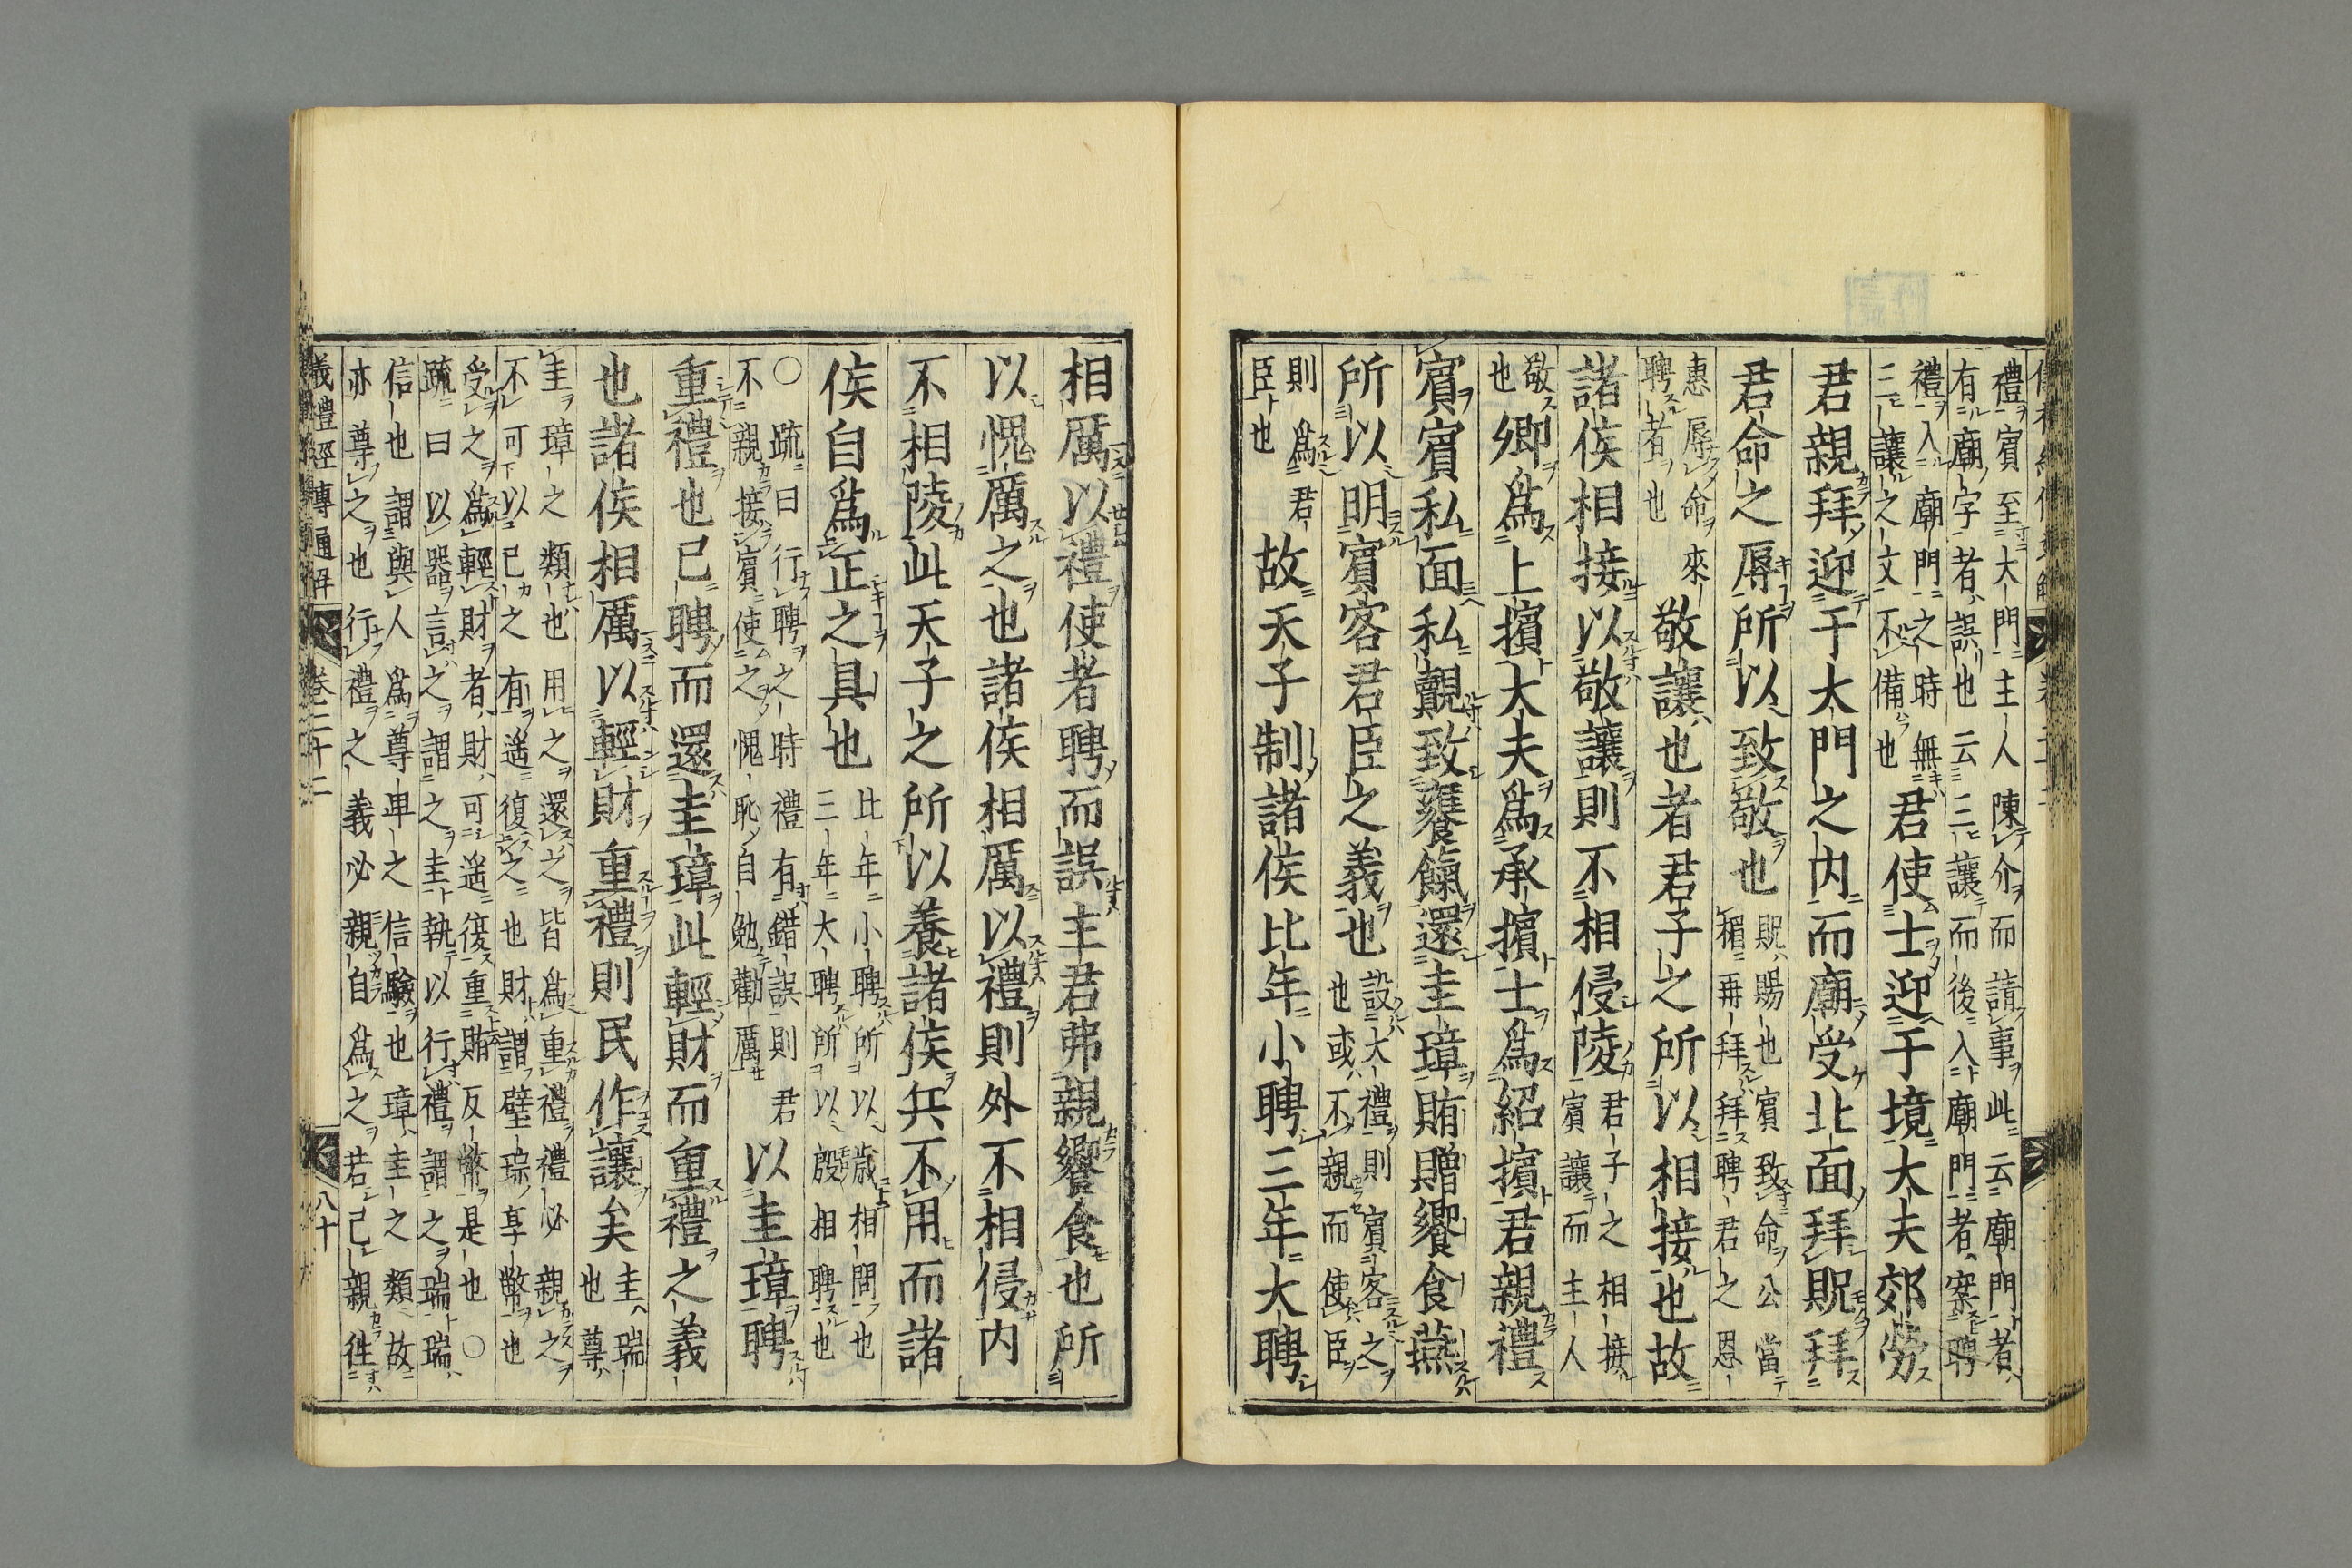 禮賓至大門主人陳介而請事此云廟門者
有廟字者誤也云三讓而後入廟門者案聘
禮入廟門之時無
三讓之文不備也
君使士迎于境大夫郊勞
君親拜迎于大門之內而廟受北面拜貺拜
君命之辱所以致敬也
貺賜也賓致命公當
楣再拜拜聘君之恩
惠辱命來
聘者也
敬讓也者君子之所以相接也故
諸侯相接以敬讓則不相侵陵
君子之相接
賓讓而主人
敬
也
卿爲上擯大夫爲承擯士爲紹擯君親禮
賓賓私面私覿致饔餼還圭璋賄贈饗食燕
所以明賓客君臣之義也
設大禮則賓客之
也或不親而使臣
則爲君
臣也
故天子制諸侯比年小聘三年大聘
相厲以禮使者聘而誤主君弗親饗食也所
以愧厲之也諸侯相厲以禮則外不相侵內
不相陵此天子之所以養諸侯兵不用而諸
侯自爲正之具也
比年小聘所以歲相問也
三年大聘所以殷相聘也
○疏曰行聘之時禮有錯誤則君
不親接賓使之愧恥自勉勸厲
以圭璋聘
重禮也已聘而還圭璋此輕財而重禮之義
也諸侯相厲以輕財重禮則民作讓矣
圭瑞
也尊
圭璋之類也用之還之皆爲重禮禮必親之
不可以已之有遙復之也財謂璧琮享幣也
受之爲輕財者財可遙復重賄反幣是也○
疏曰以器言之謂之圭執以行禮謂之瑞瑞
信也謂與人爲尊卑之信驗也璋圭之類故
亦尊之也行禮之義必親自爲之若己親往
儀禮經傳通解 卷二十二 八十